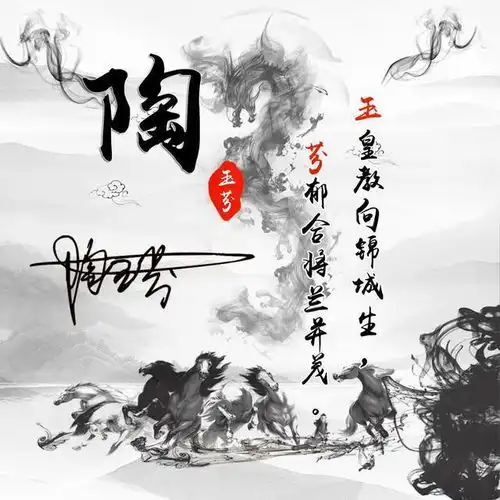 陶
玉芬
玉皇教向锦城生，
芬郁合将兰并茂。
陶玉芬